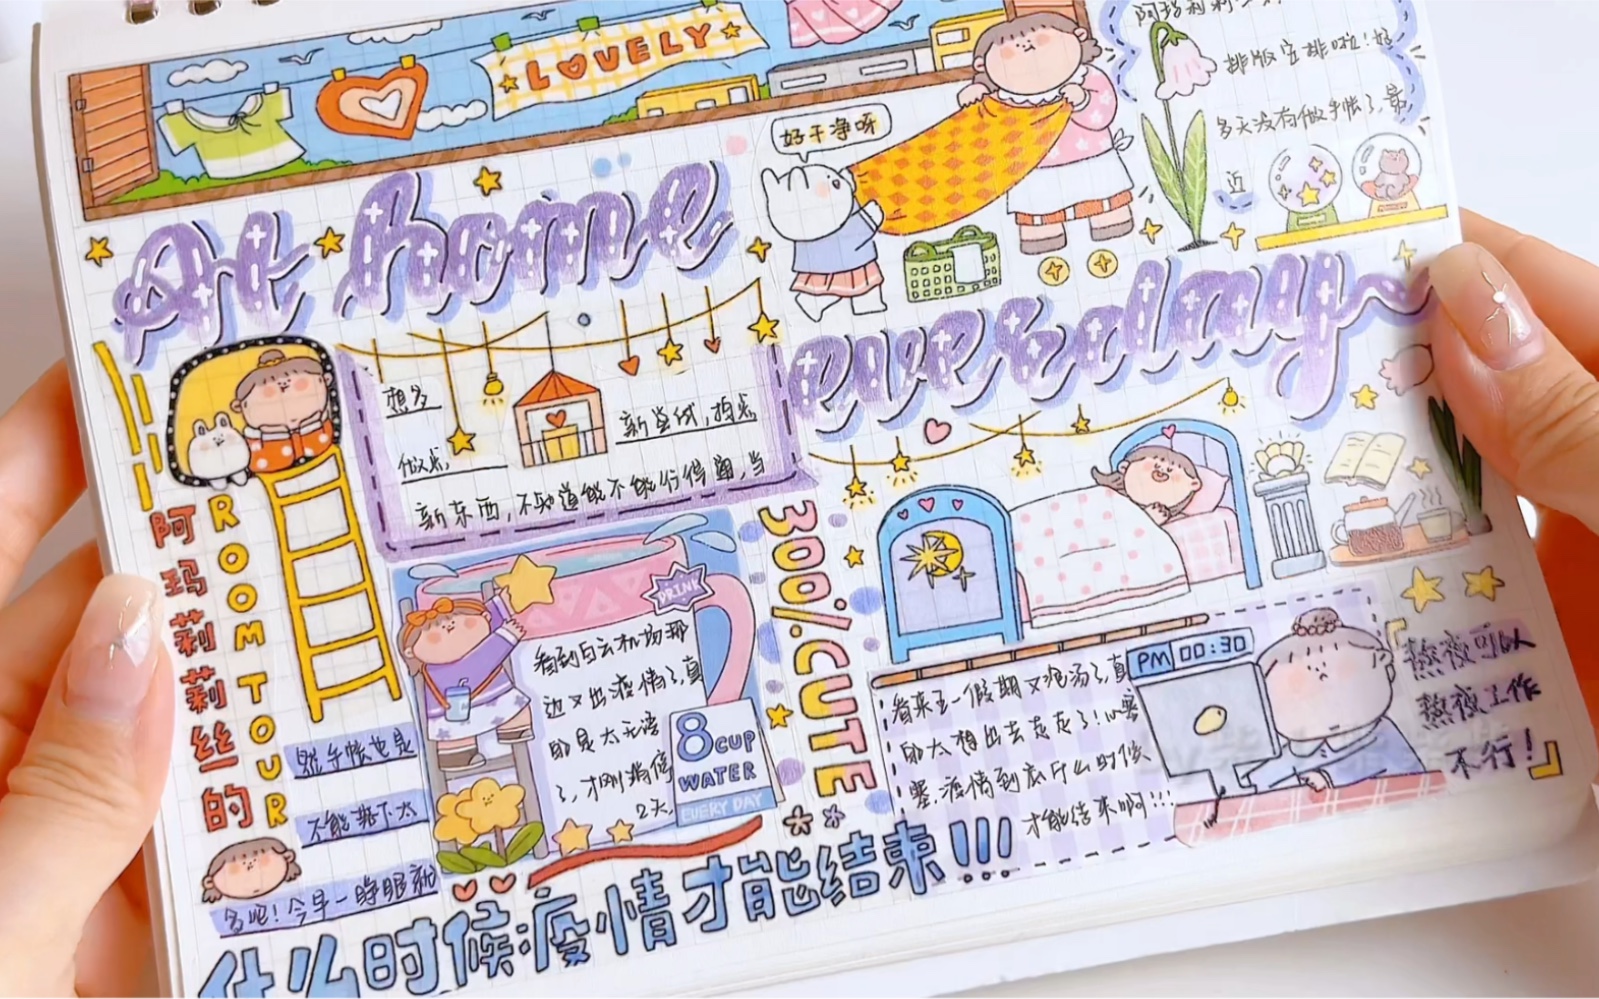 LOVELY
好干净呀
排版安排啦！好
多天没有做手帐了，最
近
At home
everyday
想多
做点，
新尝试，拍点
新东西，不知道能不能行得通，当
阿玛莉莉丝的
ROOM TOUR
300%.CUTE
DRINK
看到白云机场那
边又出疫情了，真
的是太无语
了，才刚消停
2天，
8 CUP
WATER
EVERY DAY
PM 00:30
看来五一假期又泡汤了，真
的太想出去走走了！
疫情到底什么时候
才能结束啊！！！
「熬夜可以
熬夜工作
不行！」
不能落下太
多吧！今早一睁眼就
什么时候疫情才能结束！！！